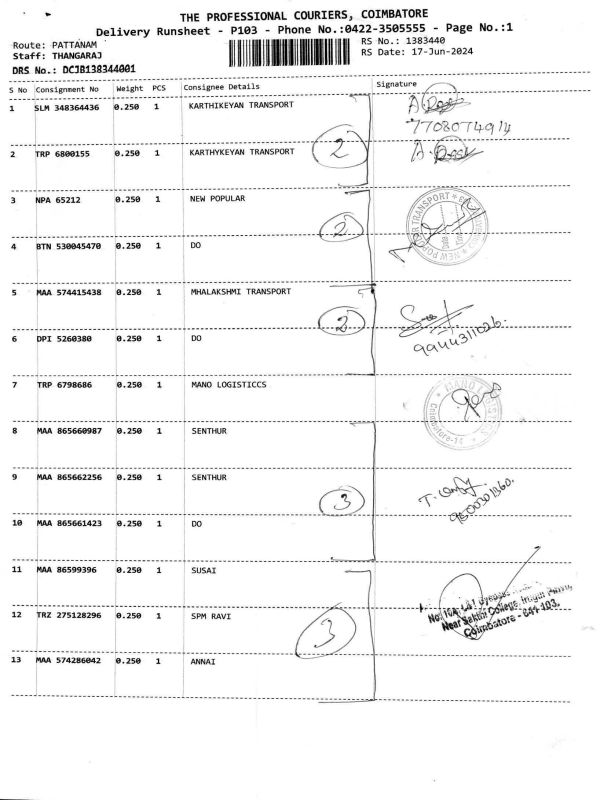 THE PROFESSIONAL COURIERS, COIMBATORE
Delivery Runsheet - P103 - Phone No.:0422-3505555 - Page No.:1
Route: PATTANAM
RS No.: 1383440
Staff: THANGARAJ
RS Date: 17-Jun-2024
DRS No.: DCJB138344001
S No Consignment No Weight PCS Consignee Details Signature
1 SLM 348364436 0.250 1 KARTHIKEYAN TRANSPORT
7708074914
2 TRP 6800155 0.250 1 KARTHYKEYAN TRANSPORT
2
3 NPA 65212 0.250 1 NEW POPULAR
2
4 BTN 530045470 0.250 1 DO
5 MAA 574415438 0.250 1 MHALAKSHMI TRANSPORT
2
6 DPI 5260380 0.250 1 DO
9944311026.
7 TRP 6798686 0.250 1 MANO LOGISTICCS
MANO
Coimbatore-14
8 MAA 865660987 0.250 1 SENTHUR
9 MAA 865662256 0.250 1 SENTHUR
3
10 MAA 865661423 0.250 1 DO
11 MAA 86599396 0.250 1 SUSAI
12 TRZ 275128296 0.250 1 SPM RAVI
3
Near Sakthi College,
Coimbatore - 641 103.
13 MAA 574286042 0.250 1 ANNAI